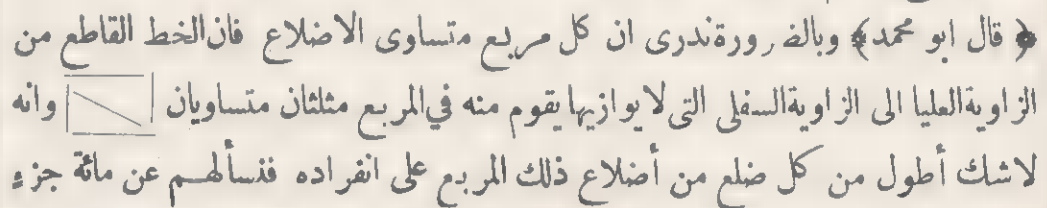 ﴿ قال ابو محمد ﴾ وبالضرورة ندرى ان كل مربع متساوى الاضلاع فان الخط القاطع من
الزاوية العليا الى الزاوية السفلى التى لا يوازيها يقوم منه في المربع مثلثان متساويان وانه
لا شك أطول من كل ضلع من أضلاع ذلك المربع على انفراده فنسألهم عن مائة جزء